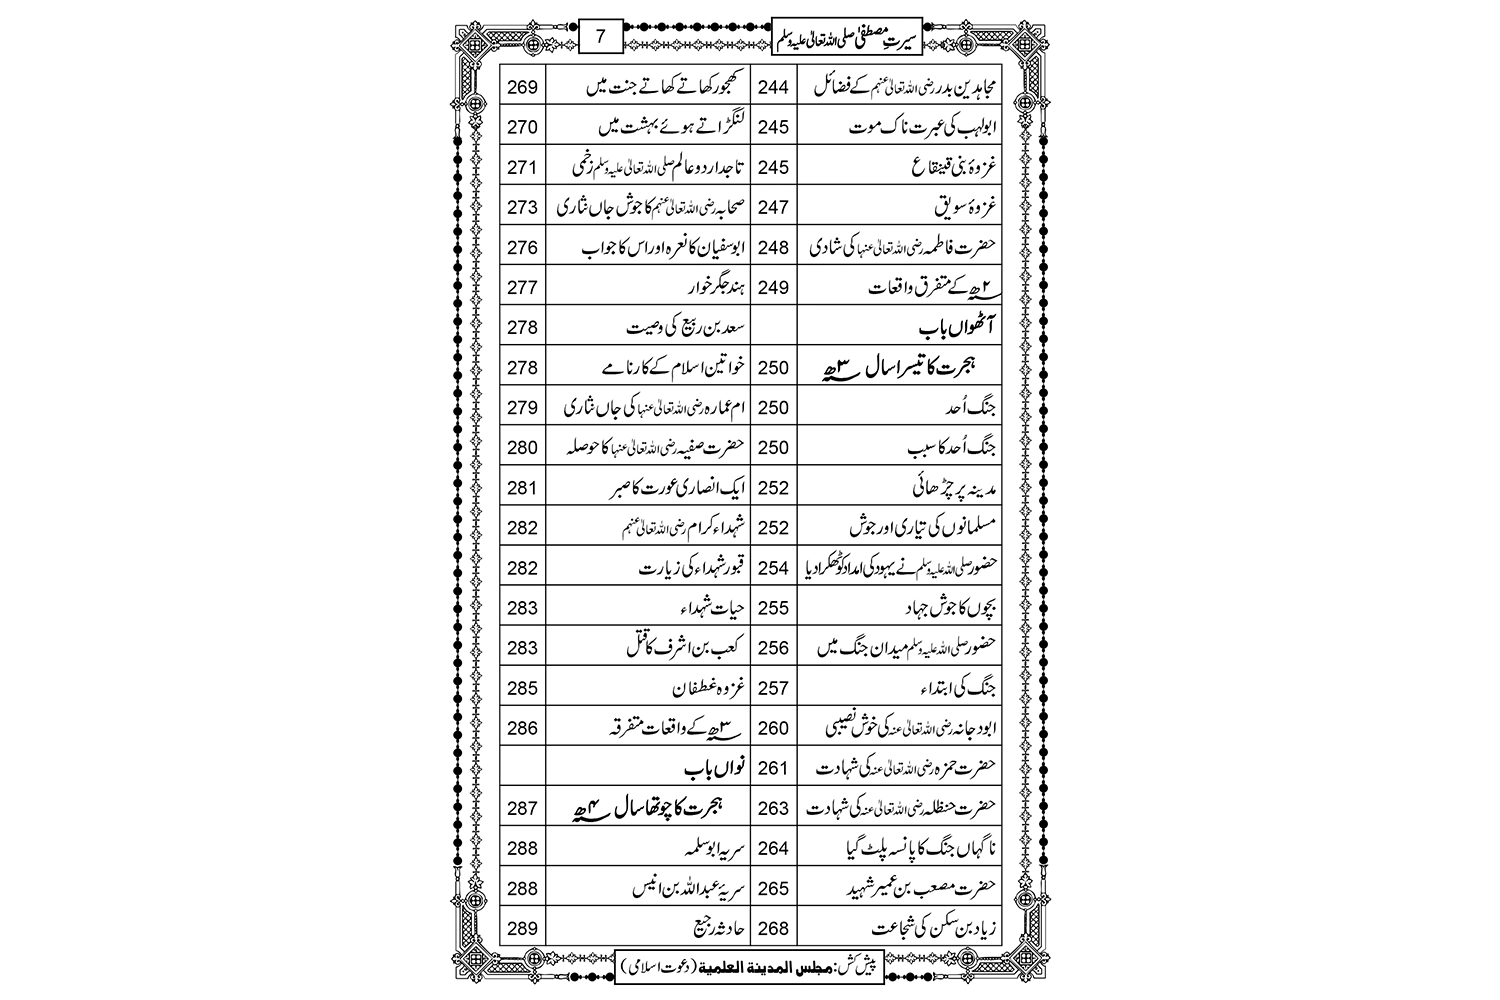 سیرتِ مصطفیٰ صلی اللہ تعالیٰ علیہ وسلم 7
مجاہدین بدر رضی اللہ تعالیٰ عنہم کے فضائل 244
ابولہب کی عبرت ناک موت 245
غزوۂ بنی قینقاع 245
غزوۂ سویق 247
حضرت فاطمہ رضی اللہ تعالیٰ عنہا کی شادی 248
۲ھ کے متفرق واقعات 249
آٹھواں باب
ہجرت کا تیسرا سال ۳ھ 250
جنگ اُحد 250
جنگ اُحد کا سبب 250
مدینہ پر چڑھائی 252
مسلمانوں کی تیاری اور جوش 252
حضور صلی اللہ علیہ وسلم نے یہود کی امداد کو ٹھکرا دیا 254
بچوں کا جوش جہاد 255
حضور صلی اللہ علیہ وسلم میدان جنگ میں 256
جنگ کی ابتداء 257
ابودجانہ رضی اللہ تعالیٰ عنہ کی خوش نصیبی 260
حضرت حمزہ رضی اللہ تعالیٰ عنہ کی شہادت 261
حضرت حنظلہ رضی اللہ تعالیٰ عنہ کی شہادت 263
ناگہاں جنگ کا پانسہ پلٹ گیا 264
حضرت مصعب بن عمیر شہید 265
زیاد بن سکن کی شجاعت 268
کھجور کھاتے کھاتے جنت میں 269
لنگڑاتے ہوئے بہشت میں 270
تاجدار دو عالم صلی اللہ تعالیٰ علیہ وسلم زخمی 271
صحابہ رضی اللہ تعالیٰ عنہم کا جوش جاں نثاری 273
ابوسفیان کا نعرہ اور اس کا جواب 276
ہند جگر خوار 277
سعد بن ربیع کی وصیت 278
خواتین اسلام کے کارنامے 278
ام عمارہ رضی اللہ تعالیٰ عنہا کی جاں نثاری 279
حضرت صفیہ رضی اللہ تعالیٰ عنہا کا حوصلہ 280
ایک انصاری عورت کا صبر 281
شہداء کرام رضی اللہ تعالیٰ عنہم 282
قبور شہداء کی زیارت 282
حیات شہداء 283
کعب بن اشرف کا قتل 283
غزوہ غطفان 285
۳ھ کے واقعات متفرقہ 286
نواں باب
ہجرت کا چوتھا سال ۴ھ 287
سریہ ابوسلمہ 288
سریۂ عبداللہ بن انیس 288
حادثہ رجیع 289
پیش کش: مجلس المدینة العلمیة (دعوت اسلامی)